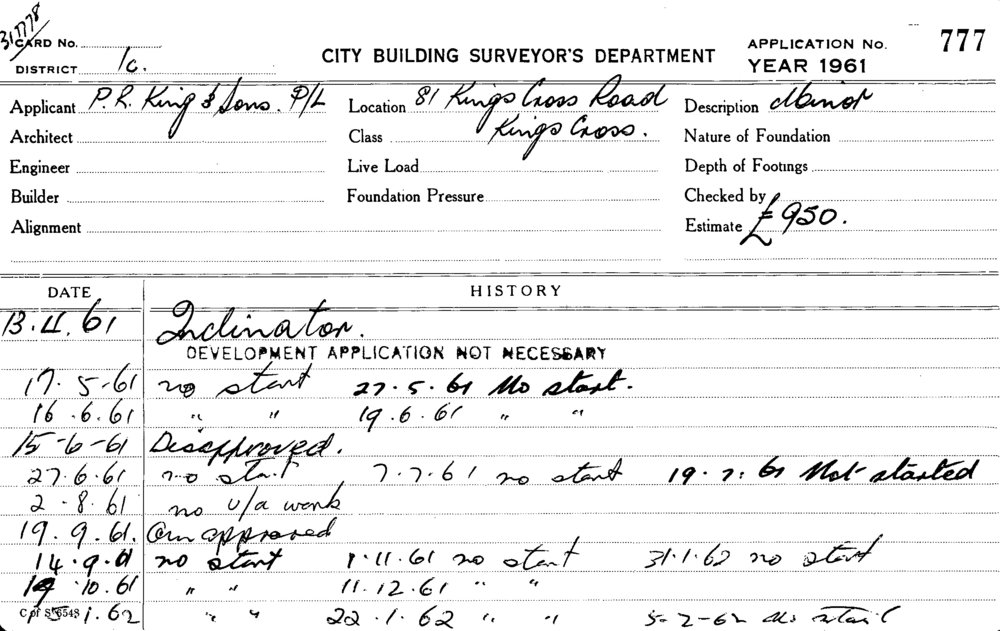 317778
CARD No.
CITY BUILDING SURVEYOR'S DEPARTMENT
APPLICATION No. 777
DISTRICT 1c.
YEAR 1961
Applicant P. R. King & Sons. P/L Location 81 Kings Cross Road Description Minor
Architect Class Kings Cross. Nature of Foundation
Engineer Live Load Depth of Footings
Builder Foundation Pressure Checked by
Alignment Estimate £950.
DATE HISTORY
13.4.61 Inclinator.
DEVELOPMENT APPLICATION NOT NECESSARY
17.5.61 no start 27.5.61 No start.
16.6.61 " " 19.6.61 " "
15-6-61 Disapproved.
27.6.61 no start 7.7.61 no start 19.7.61 Not started
2.8.61 no u/a work
19.9.61. approved
14.9.61 no start 1.11.61 no start 31.1.62 no start
10.61 " " 11.12.61 " "
C of S 6548 1.62 " " 22.1.62 " " 5-2-62 No start